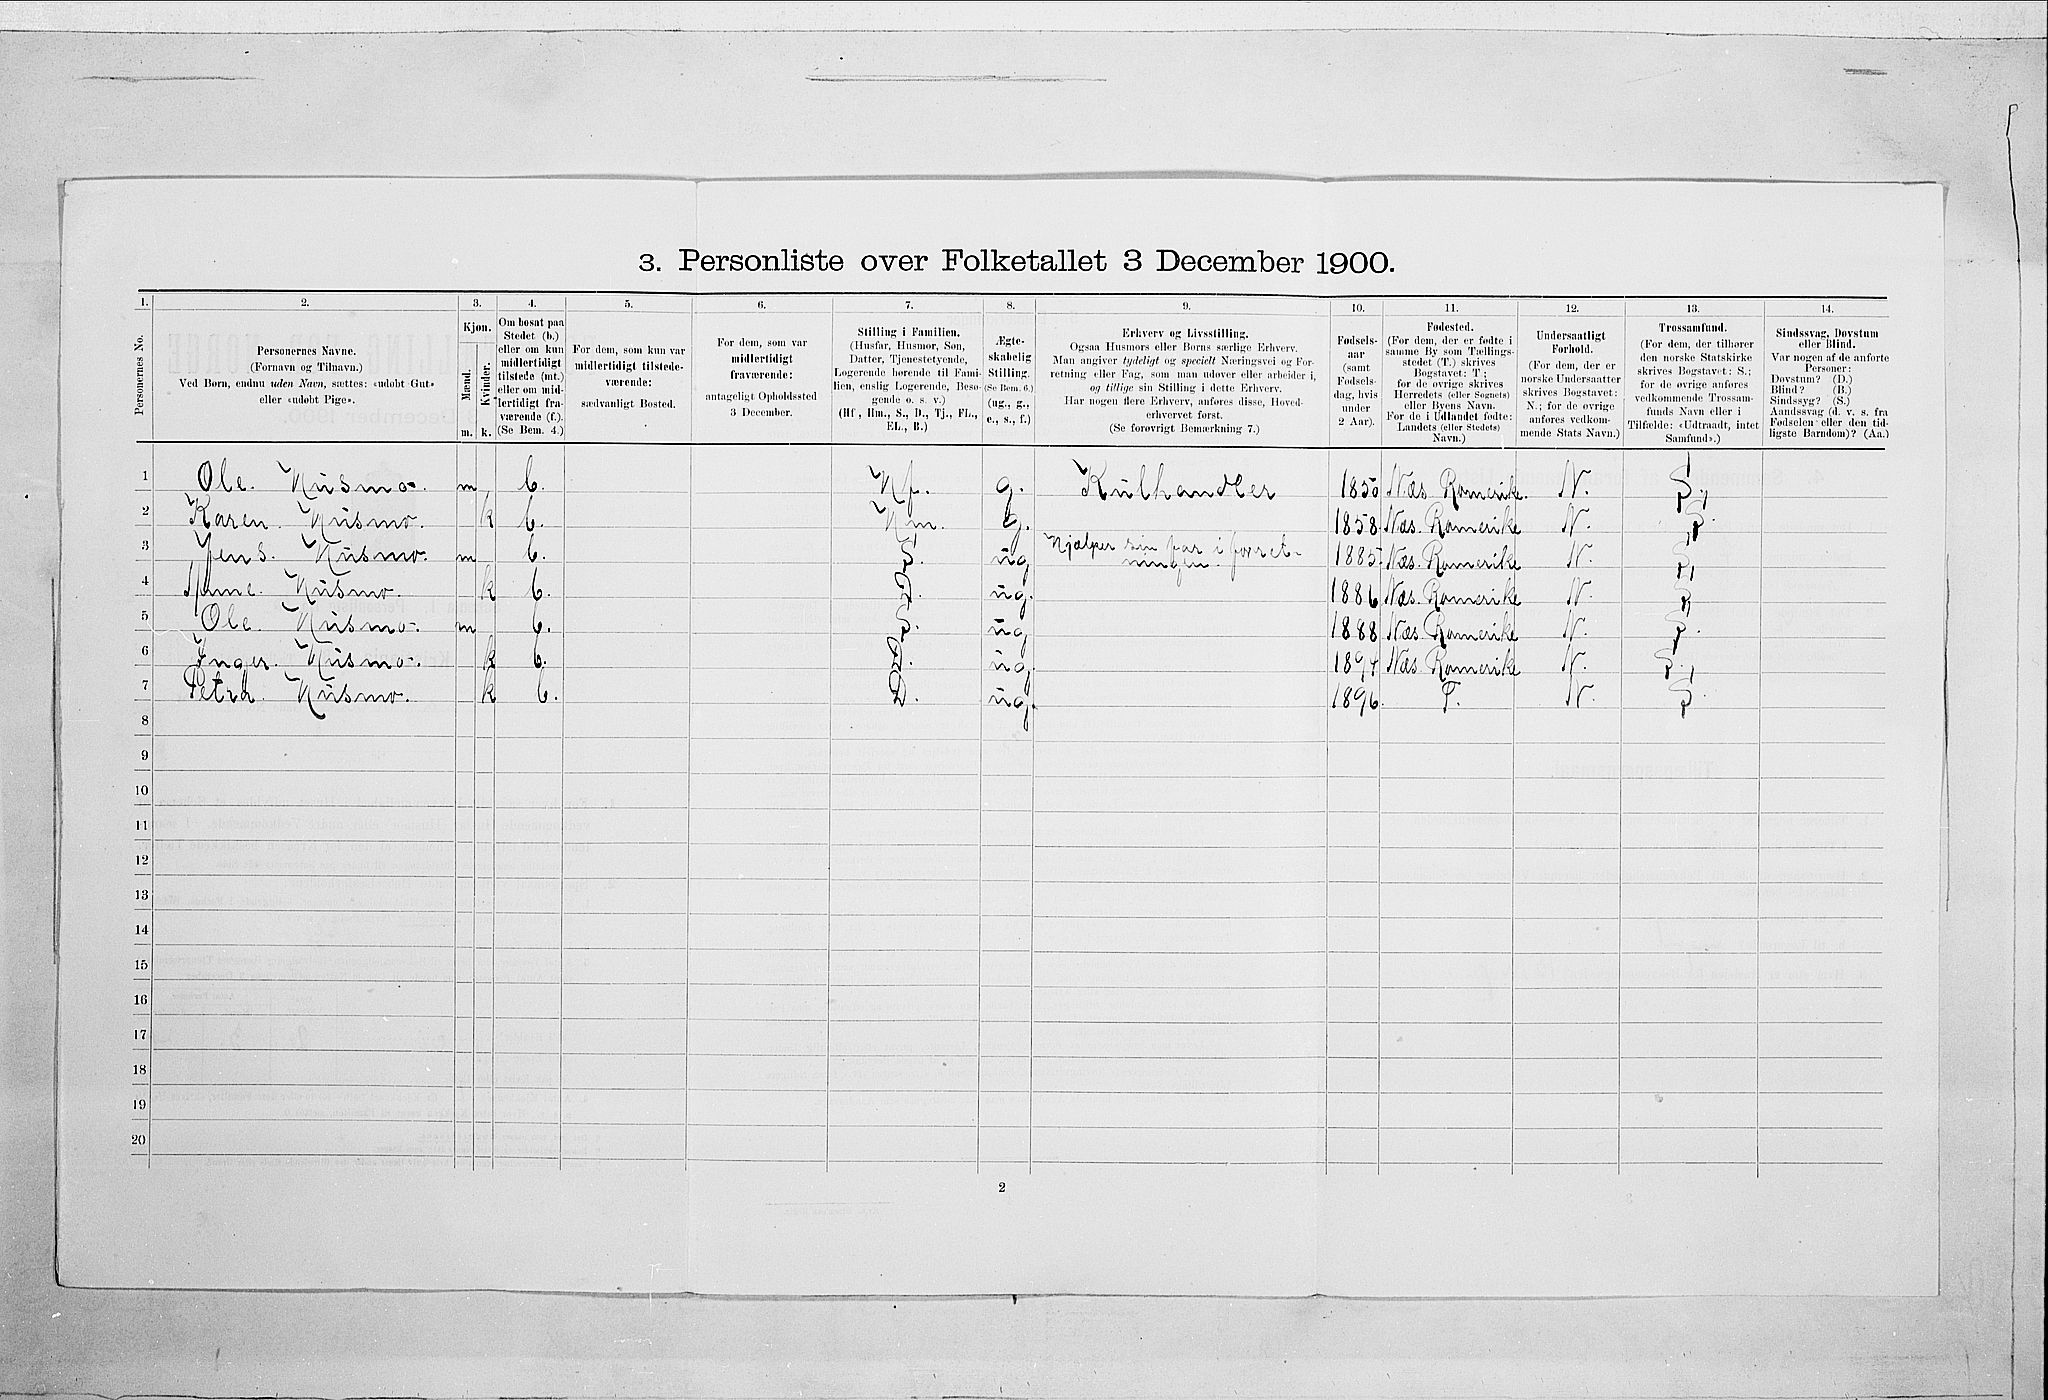 3. Personliste over Folketallet 3 December 1900.
1. 2. 3. 4. 5. 6. 7. 8. 9. 10. 11. 12. 13. 14.
Personernes No.
Personernes Navne.
(Fornavn og Tilnavn.)
Ved Børn, endnu uden Navn, sættes: «udøbt Gut»
eller «udøbt Pige».
Kjøn.
Mænd.
Kvinder.
m. k.
Om bosat paa
Stedet (b.)
eller om kun
midlertidigt
tilstede (mt.)
eller om mid-
lertidigt fra-
værende (f.).
(Se Bem. 4.)
For dem, som kun var
midlertidigt tilstede-
værende:
sædvanligt Bosted.
For dem, som var
midlertidigt
fraværende:
antageligt Opholdssted
3 December.
Stilling i Familien.
(Husfar, Husmor, Søn,
Datter, Tjenestetyende,
Logerende hørende til Fami-
lien, enslig Logerende, Besø-
gende o. s. v.)
(Hf., Hm., S., D., Tj., FL.,
EL., B.)
Ægte-
skabelig
Stilling.
(Se Bem. 6.)
(ug., g.,
e., s., f.)
Erhverv og Livsstilling.
Ogsaa Husmors eller Børns særlige Erhverv.
Man angiver tydeligt og specielt Næringsvei og For-
retning eller Fag, som man udøver eller arbeider i,
og tillige sin Stilling i dette Erhverv.
Har nogen flere Erhverv, anføres disse, Hoved-
erhvervet først.
(Se forøvrigt Bemærkning 7.)
Fødsels-
aar
(samt
Fødsels-
dag, hvis
under
2 Aar).
Fødested.
(For dem, der er fødte i
samme By som Tællings-
stedet (T.) skrives
Bogstavet: T.;
for de øvrige skrives
Herredets (eller Sognets)
eller Byens Navn.
For de i Udlandet fødte:
Landets (eller Stedets)
Navn.)
Undersaatligt
Forhold.
(For dem, der er
norske Undersaatter
skrives Bogstavet:
N.; for de øvrige
anføres vedkom-
mende Stats Navn.)
Trossamfund.
(For dem, der tilhører
den norske Statskirke
skrives Bogstavet: S.;
for de øvrige anføres
vedkommende Trossam-
funds Navn eller i
Tilfælde: «Udtraadt, intet
Samfund».)
Sindssvag, Døvstum
eller Blind.
Var nogen af de anførte
Personer:
Døvstum? (D.)
Blind? (B.)
Sindssyg? (S.)
Aandssvag (d. v. s. fra
Fødselen eller den tid-
ligste Barndom)? (Aa.)
1 Ole. Husmo. m b. Hf. g. Kulhandler 1850 Næs Romerike. N. S.
2 Karen. Husmo. k b. Hm. g. 1858. Næs. Romerike N. S.
3 Jens. Husmo. m b. S. ug Hjælper sin far i forret-
ningen. 1885 Næs. Romerike N. S.
4 Husmo. k b. D. ug. 1886 Næs. Romerike N. S.
5 Ole. Husmo. m b. S. ug 1888 Næs Romerike N. S.
6 Inger. Husmo. k b. D. ug. 1894 Næs. Romerike N. S.
7 Petra. Husmo. k b. D. ug. 1896. T. N. S.
8
9
10
11
12
13
14
15
16
17
18
19
20
2